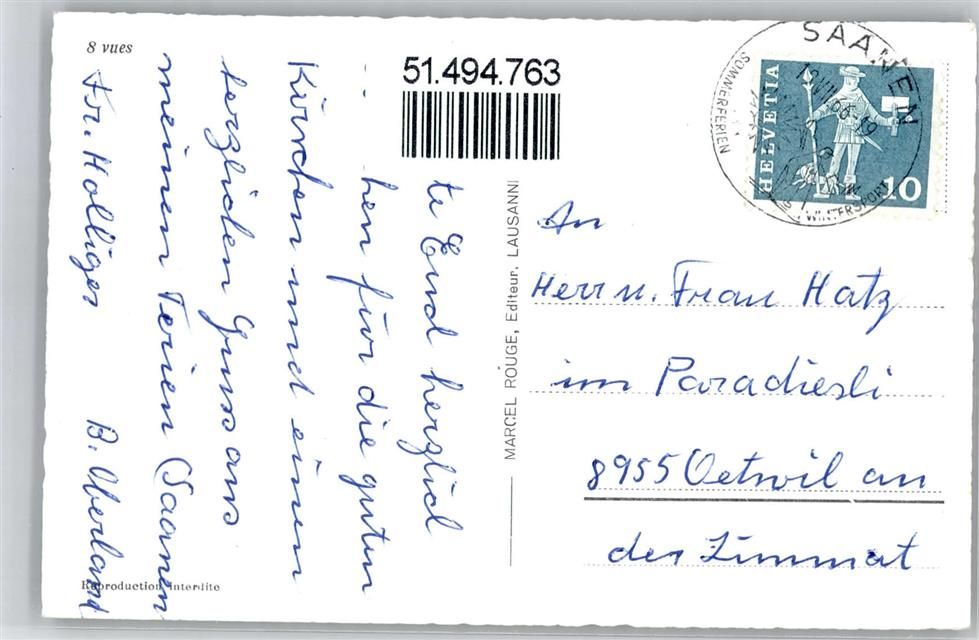 8 vues
51.494.763
te Euch herzlich
hen für die guten
Kirschen und einen
herzlichen Gruss aus
meinen Ferien (Saanen
Fr. Holliger B. Oberland
Reproduction interdite
MARCEL ROUGE, Editeur, LAUSANNE
SAANEN
SOMMERFERIEN
WINTERSPORT
HELVETIA
10
An
Herr u. Frau Hatz
im Paradiesli
8955 Oetwil an
der Limmat